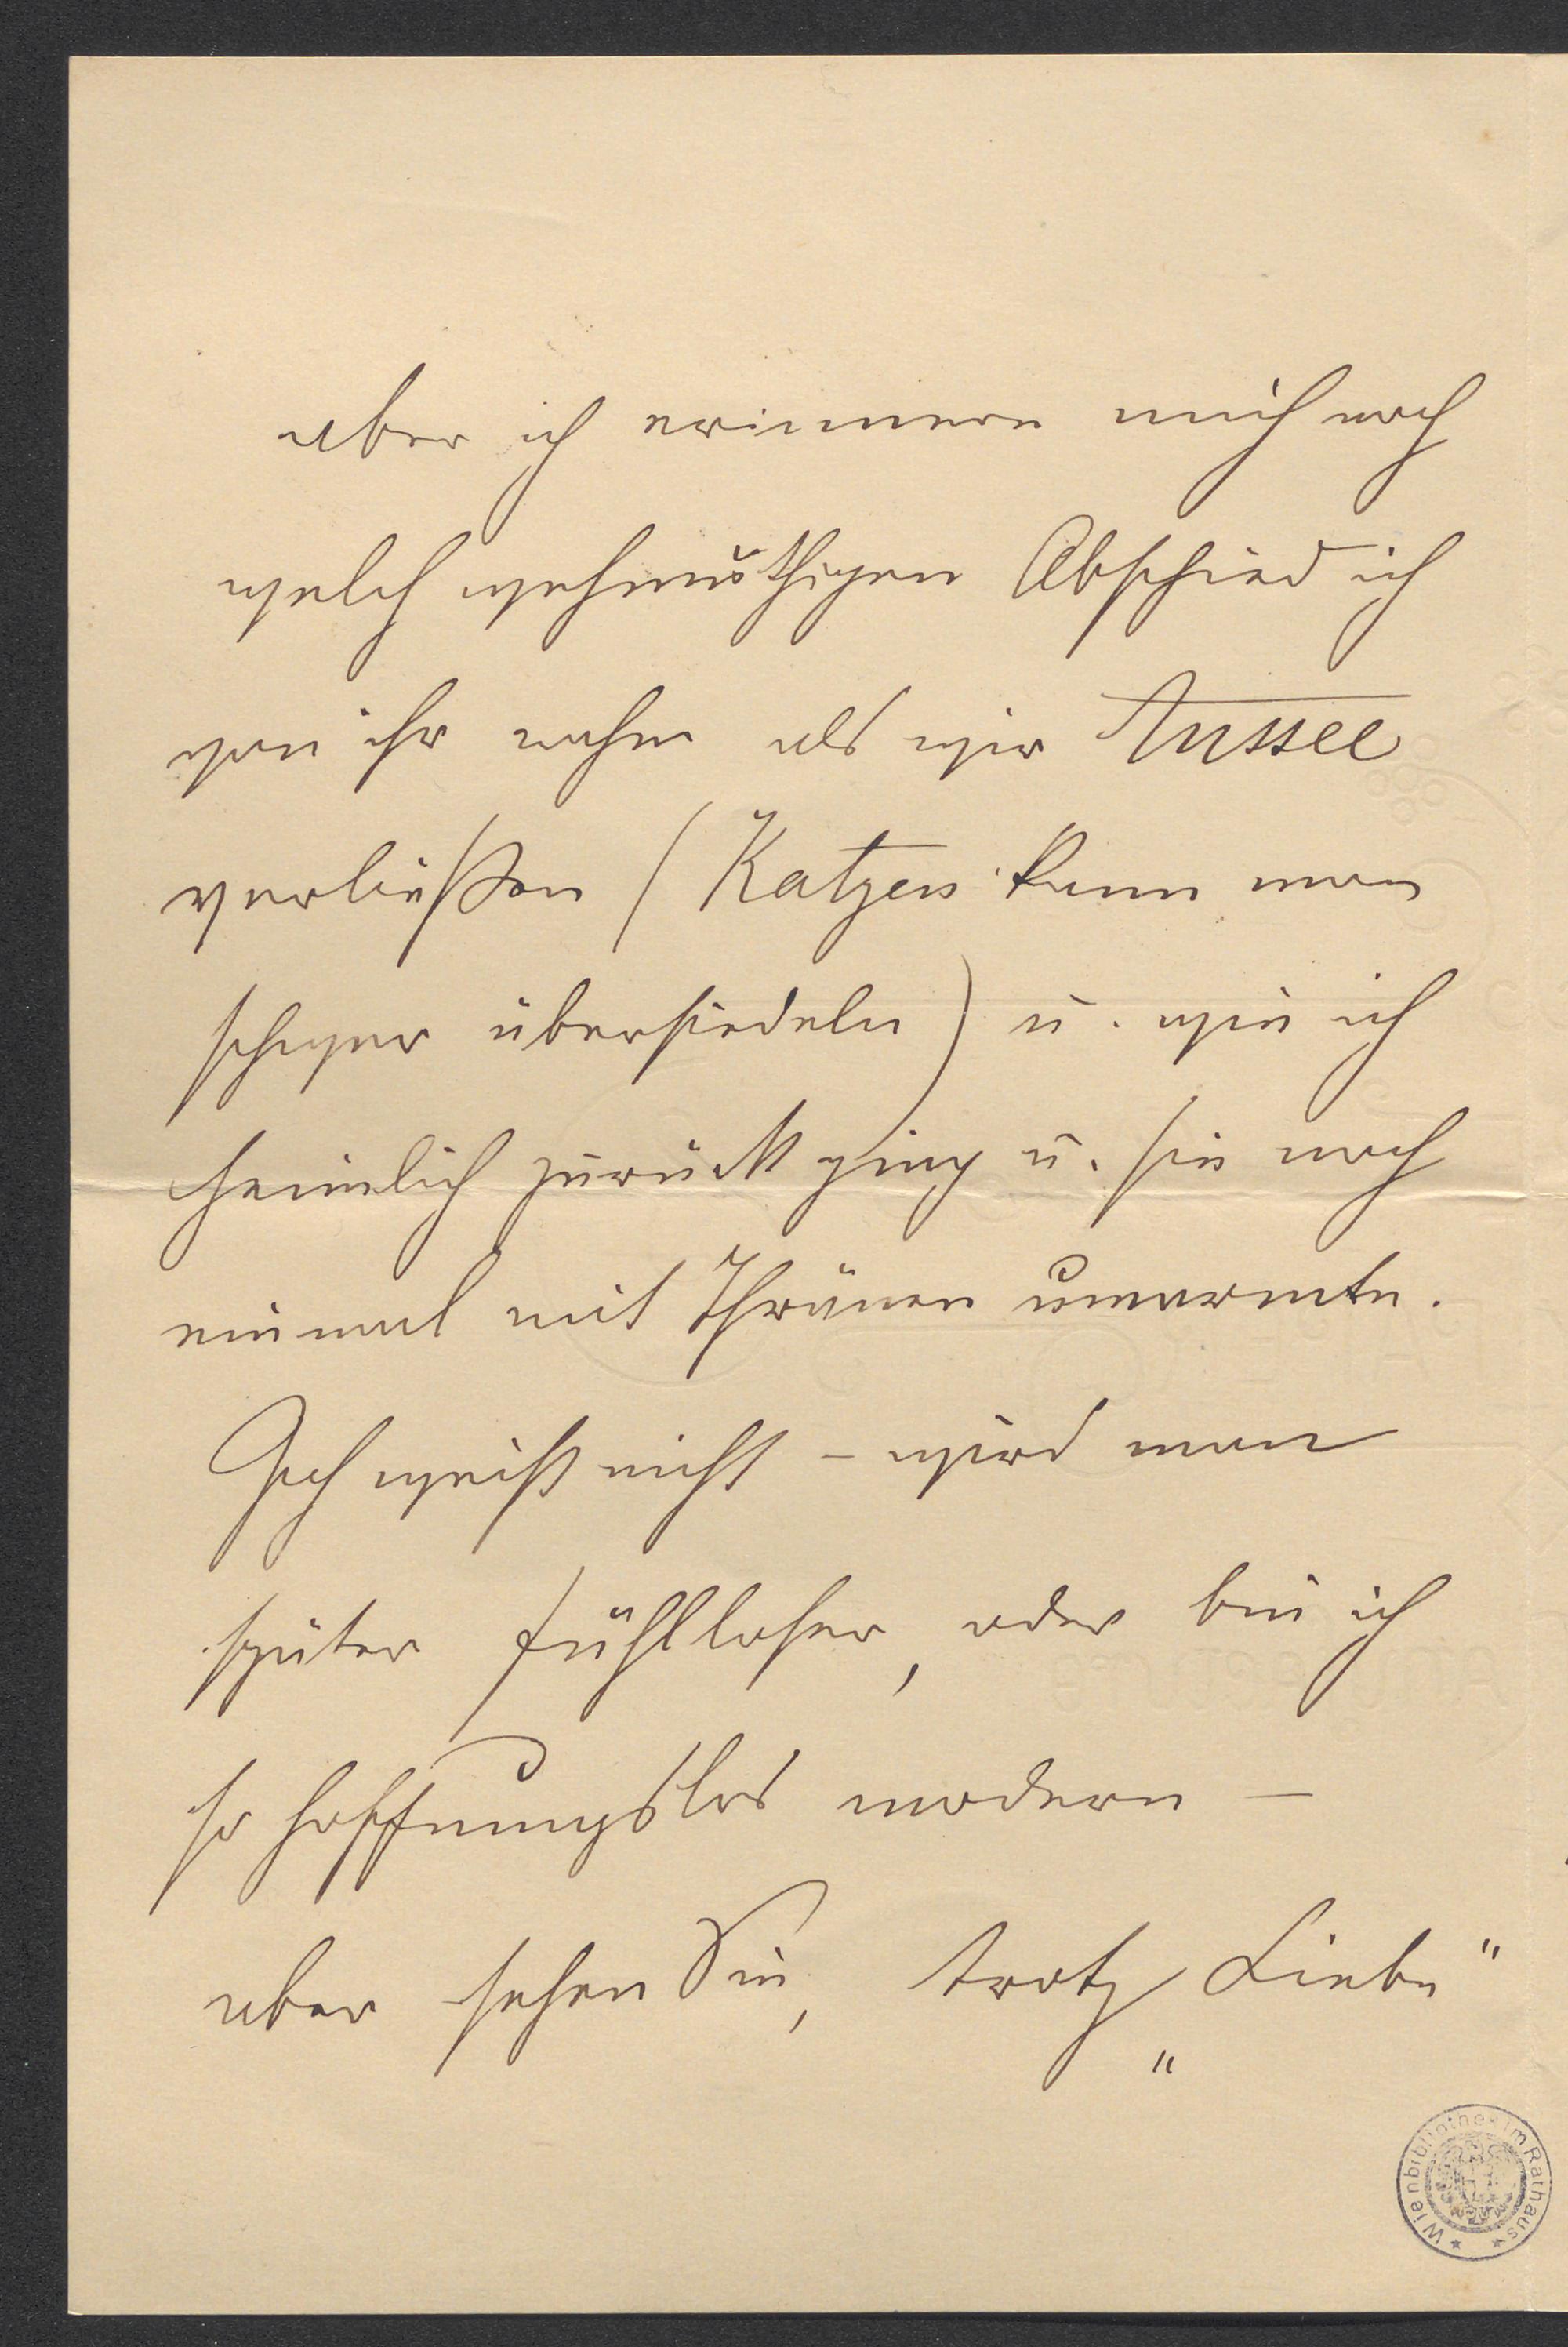 aber ich erinnere mich noch
welch wehmüthigen Abschied ich
von ihr nahm als wir Aussee
verließen (Katzen kann man
schwer übersiedeln) u. wie ich
heimlich zurück ging u. sie noch
einmal mit Thränen umarmte.
Ich weiß nicht – wird man
später fühlloser, oder bin ich
so hoffnungslos modern –
aber sehen Sie, trotz „Liebe"
Wienbibliothek im Rathaus